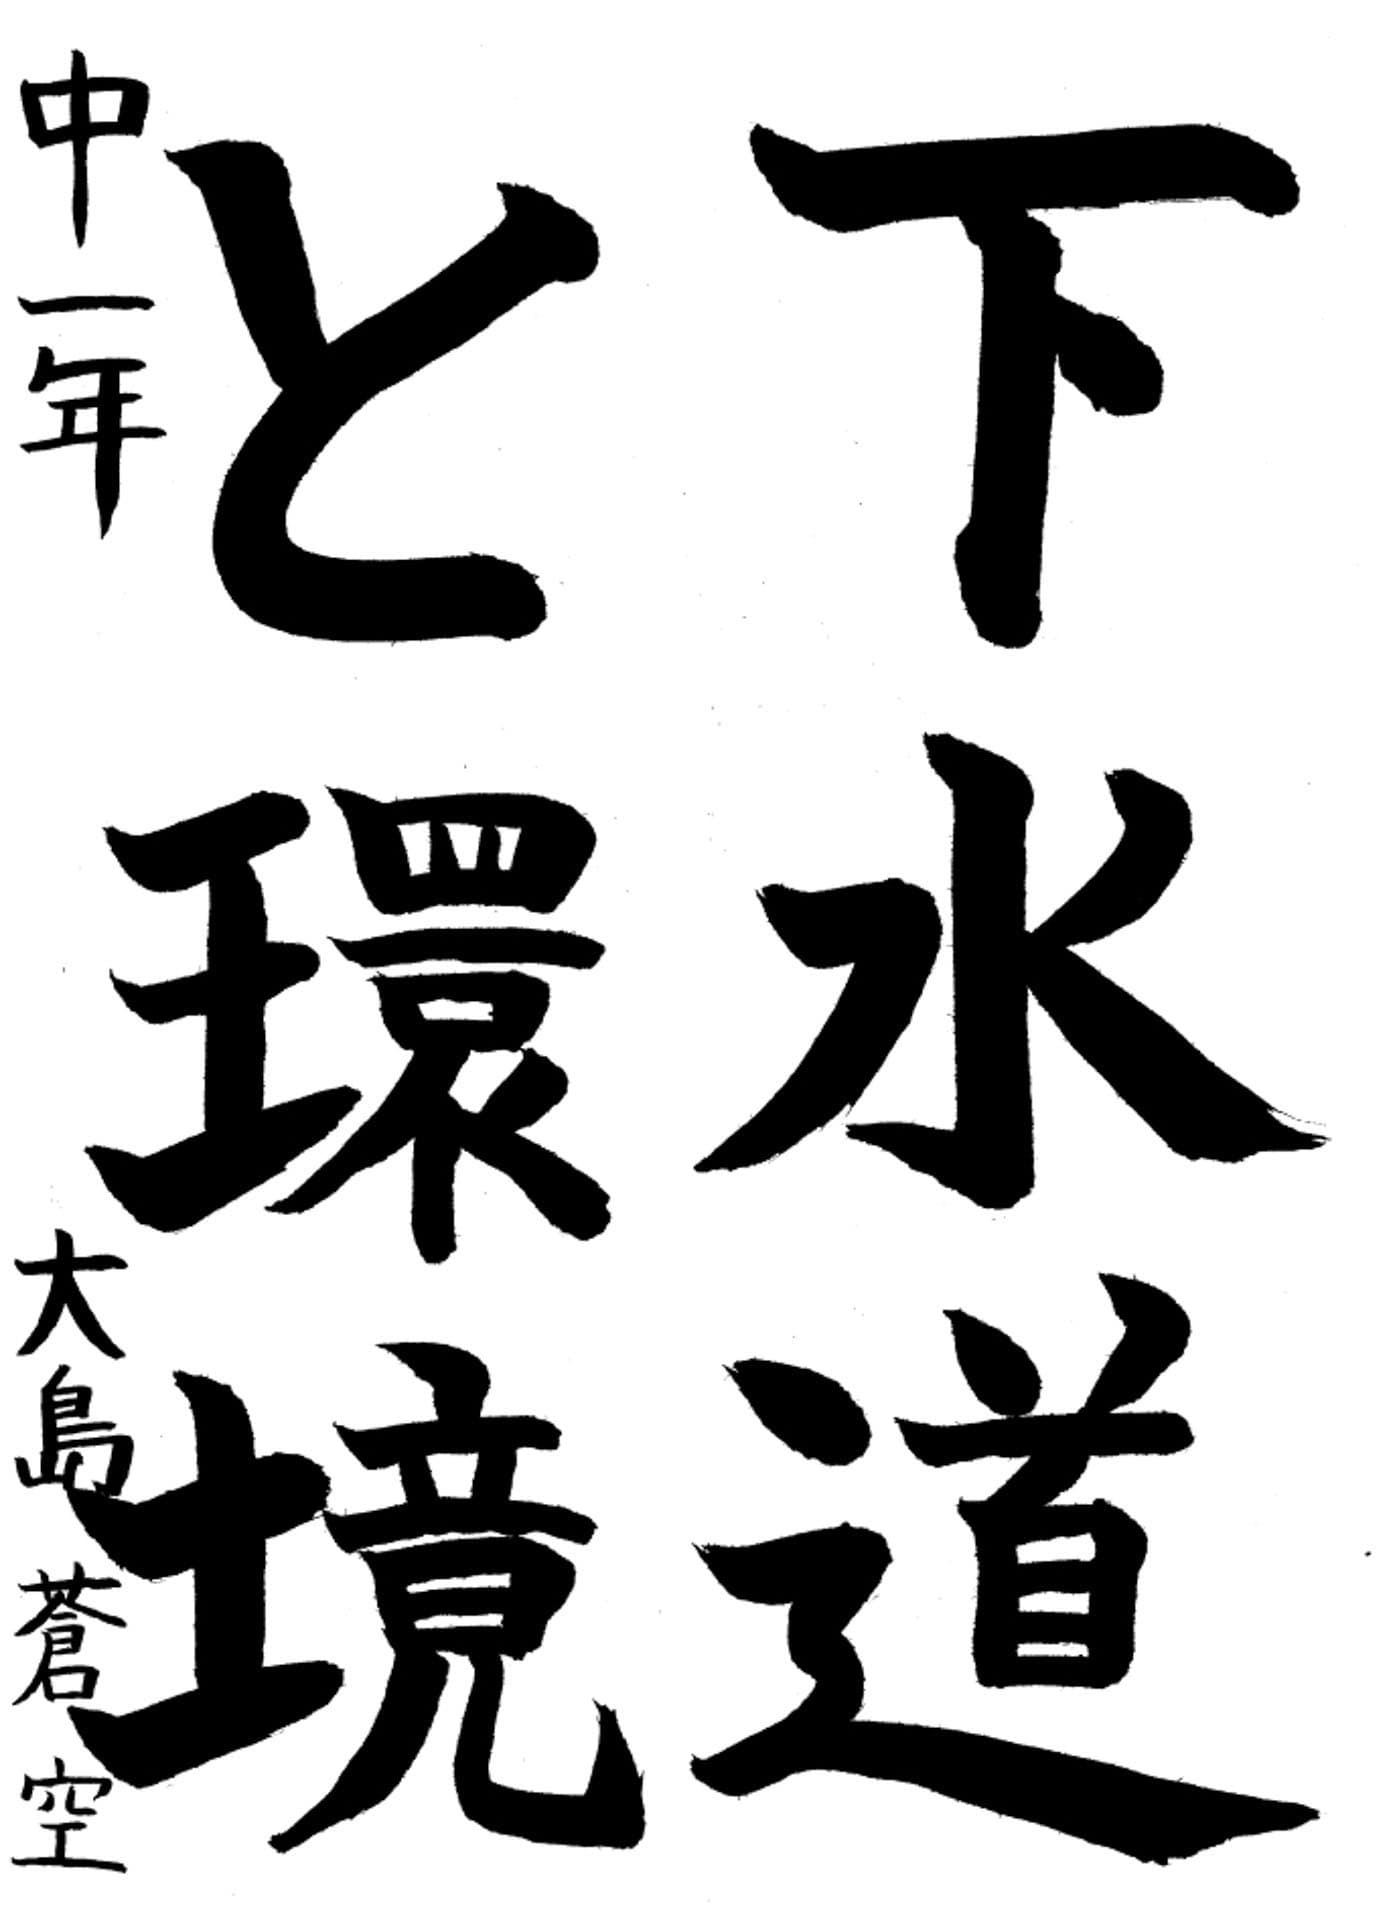 下水道
と環境
中一年 大島蒼空